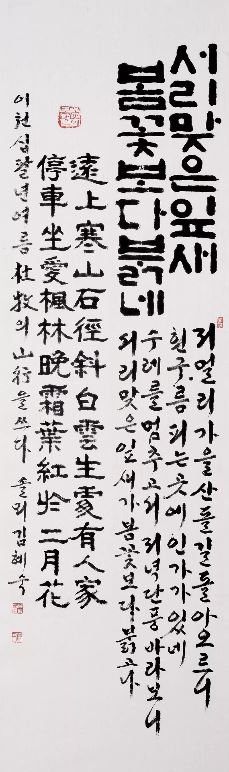 서리맞은잎새
봄꽃보다붉네
저멀리가을산돌길돌아오르니
흰구름피는곳에인가가있네
수레를멈추고서저녁단풍바라보니
서리맞은잎새가봄꽃보다붉고나
遠上寒山石徑斜白雲生處有人家
停車坐愛楓林晩霜葉紅於二月花
이천십팔년여름 杜牧의 山行을쓰다 솔뫼김혜숙